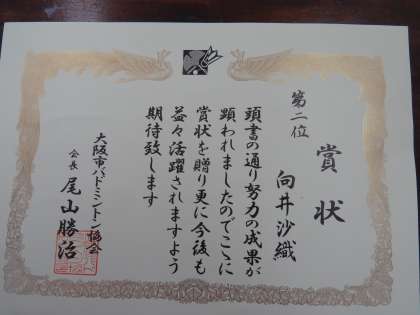 賞状
第二位
向井沙織
頭書の通り努力の成果が
顕われましたのでここに
賞状を贈り更に今後も
益々活躍されますよう
期待致します
大阪市バドミントン協会
会長 尾山勝治